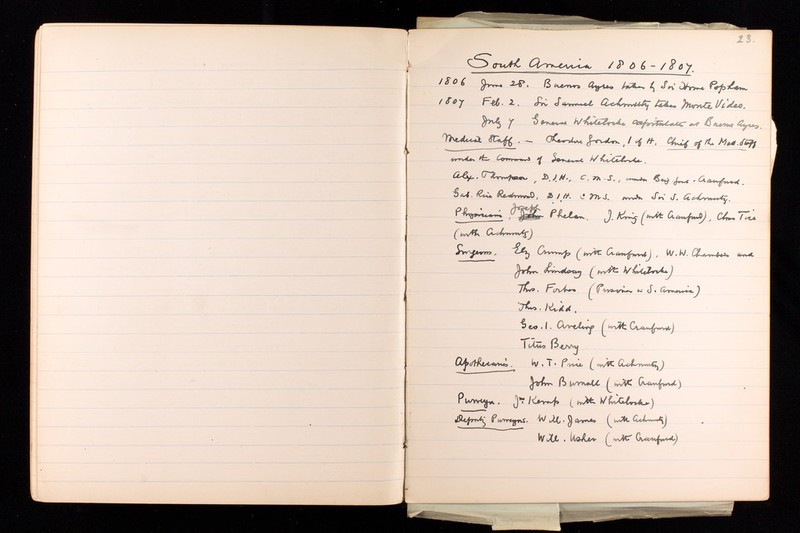 23.
South America 1806-1807.
1806 June 28. Buenos Ayres taken by Sir Home Popham
1807 Feb. 2. Sir Samuel Achmuty takes Monte Video.
July 7 General Whitelocke capitulates at Buenos Ayres.
Medical Staff. — Theodore Gordon, I of H. Chief of the Med. Staff
under the Command of General Whitelocke.
Alex. Thompson, D.I.H., C.M.S., under Brig Gen. Craufurd.
Gab. Rice Redmond, D.I.H. C.M.S. under Sir S. Achmuty.
Physicians. Joseph Phelan. J. King (with Craufurd), Chas Tice
(with Achmuty)
Surgeons. Ely Crump (with Craufurd). W.W. Chambers and
John Lindsay (with Whitelocke)
Thos. Forbes (Prisoner in S. America)
Thos. Kidd.
Geo. I. Aveling (with Craufurd)
Titus Berry
Apothecaries. W. T. Price (with Achmuty)
John Burnall (with Craufurd)
Purveyr. Jn Kemp (with Whitelocke)
Deputy Purveyrs. Will. James (with Achmuty)
Will. Usher (with Craufurd)